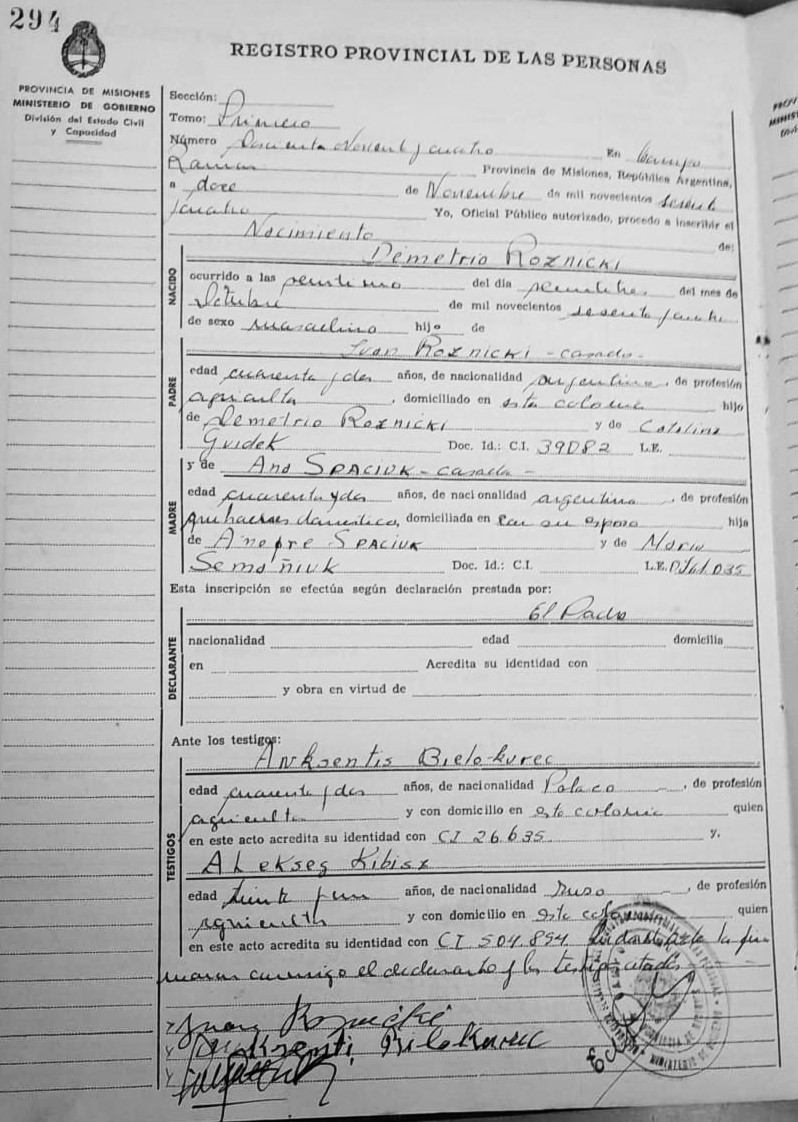 294
REGISTRO PROVINCIAL DE LAS PERSONAS
PROVINCIA DE MISIONES
MINISTERIO DE GOBIERNO
División del Estado Civil
y Capacidad
Sección:
Tomo: Primero
Número Doscientos Noventa y cuatro En Campo
Ramon Provincia de Misiones, República Argentina,
a doce de Noviembre de mil novecientos sesenta
y cuatro Yo, Oficial Público autorizado, procedo a inscribir el
Nacimiento de:
NACIDO
Demetrio Roznicki
ocurrido a las veintiuno del día veintitres del mes de
Octubre de mil novecientos sesenta y cuatro
de sexo masculino hijo de
PADRE
Ivan Roznicki - casado -
edad cuarenta y dos años, de nacionalidad argentina, de profesión
agricultor, domiciliado en esta colonia hijo
de Demetrio Roznicki y de Catalina
Gvidek Doc. Id.: C.I. 39082 L.E.
y de Ana Spaciuk - casada -
MADRE
edad cuarenta y dos años, de nacionalidad argentina, de profesión
quehaceres domestico, domiciliada en con su esposo hija
de Spaciuk y de Maria
Semañiuk Doc. Id.: C.I. L.E.
Esta inscripción se efectúa según declaración prestada por:
DECLARANTE
El Padre
nacionalidad edad domicilia
en Acredita su identidad con
y obra en virtud de
Ante los testigos:
TESTIGOS
Anksentis Bielokurec
edad cuarenta y dos años, de nacionalidad Polaco, de profesión
agricultor y con domicilio en esta colonia quien
en este acto acredita su identidad con CI 26.635 y,
Alekseg Kibisz
edad treinta y un años, de nacionalidad Ruso, de profesión
agricultor y con domicilio en esta colonia quien
en este acto acredita su identidad con CI 504.894 la fir
maron conmigo el declarante y los testigos citados
Roznicki
Anksenti Bilokurec